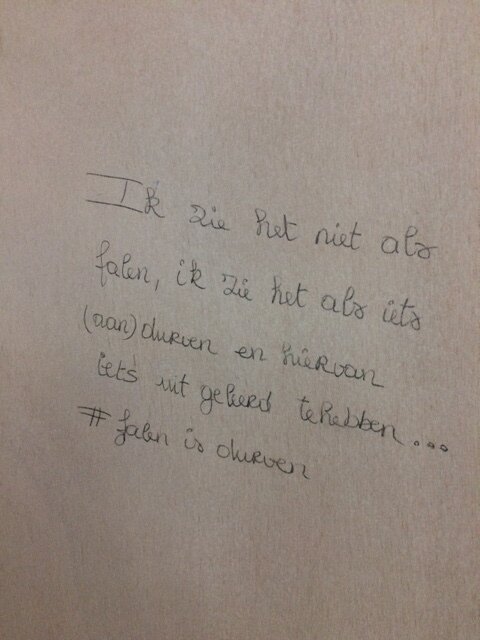 Ik zie het niet als
falen, ik zie het als iets
(aan) durven en hiervan
iets uit geleerd te hebben...
# falen is durven